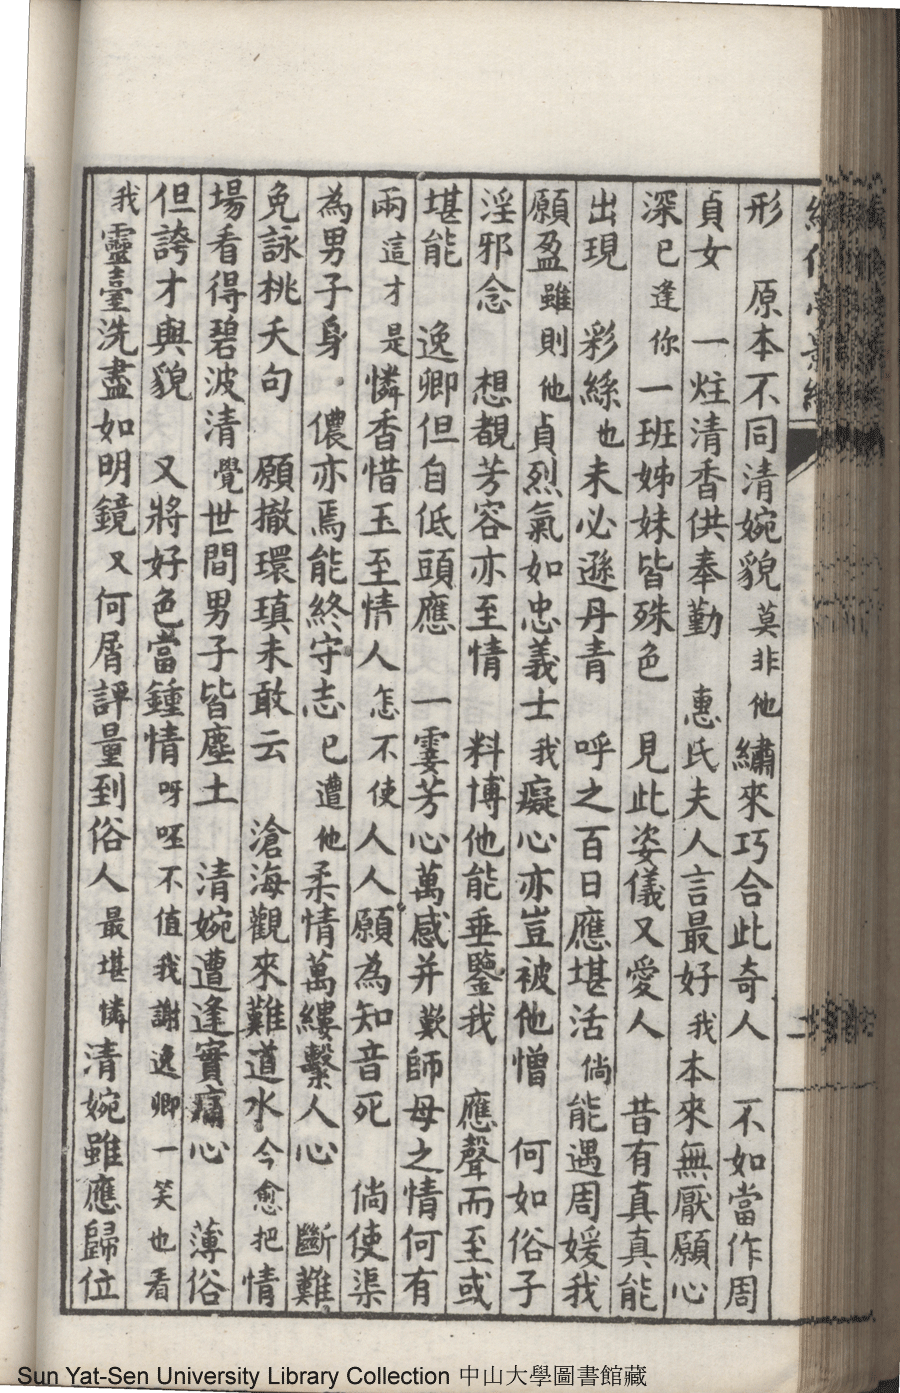 形 原本不同清婉貌莫非他繡來巧合此奇人 不如當作周
貞女 一炷清香供奉勤 惠氏夫人言最好我本來無厭願心
深已逢你一班姊妹皆殊色 見此姿儀又愛人 昔有真真能
出現 彩絲也未必遜丹青 呼之百日應堪活倘能遇周媛我
願盈雖則他貞烈氣如忠義士我癡心亦豈被他憎 何如俗子
淫邪念 想覩芳容亦至情 料博他能垂鑒我 應聲而至或
堪能 逸卿但自低頭應 一霎芳心萬感并歎師母之情何有
兩這才是憐香惜玉至情人怎不使人人願為知音死 倘使渠
為男子身 儂亦焉能終守志已遭他柔情萬縷繫人心 斷難
免詠桃夭句 願撤環瑱未敢云 滄海觀來難道水今愈把情
場看得碧波清覺世間男子皆塵土 清婉遭逢實痛心 薄俗
但誇才與貌 又將好色當鍾情呀呸不值我謝逸卿一笑也看
我靈臺洗盡如明鏡又何屑評量到俗人最堪憐清婉雖應歸位
Sun Yat-Sen University Library Collection 中山大學圖書館藏